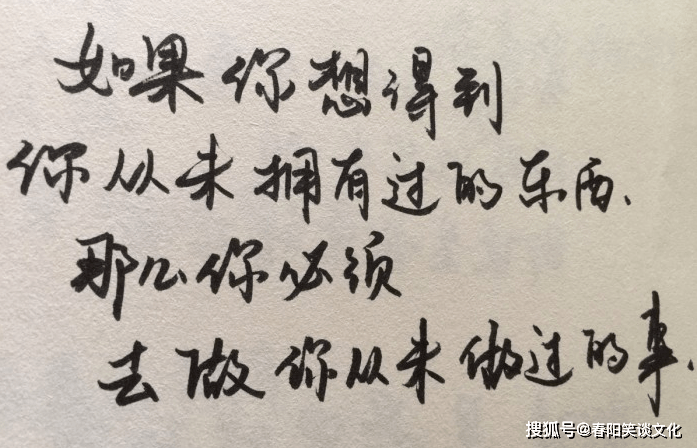 如果你想得到
你从未拥有过的东西、
那么你必须
去做你从未做过的事、
搜狐号@春阳笑谈文化